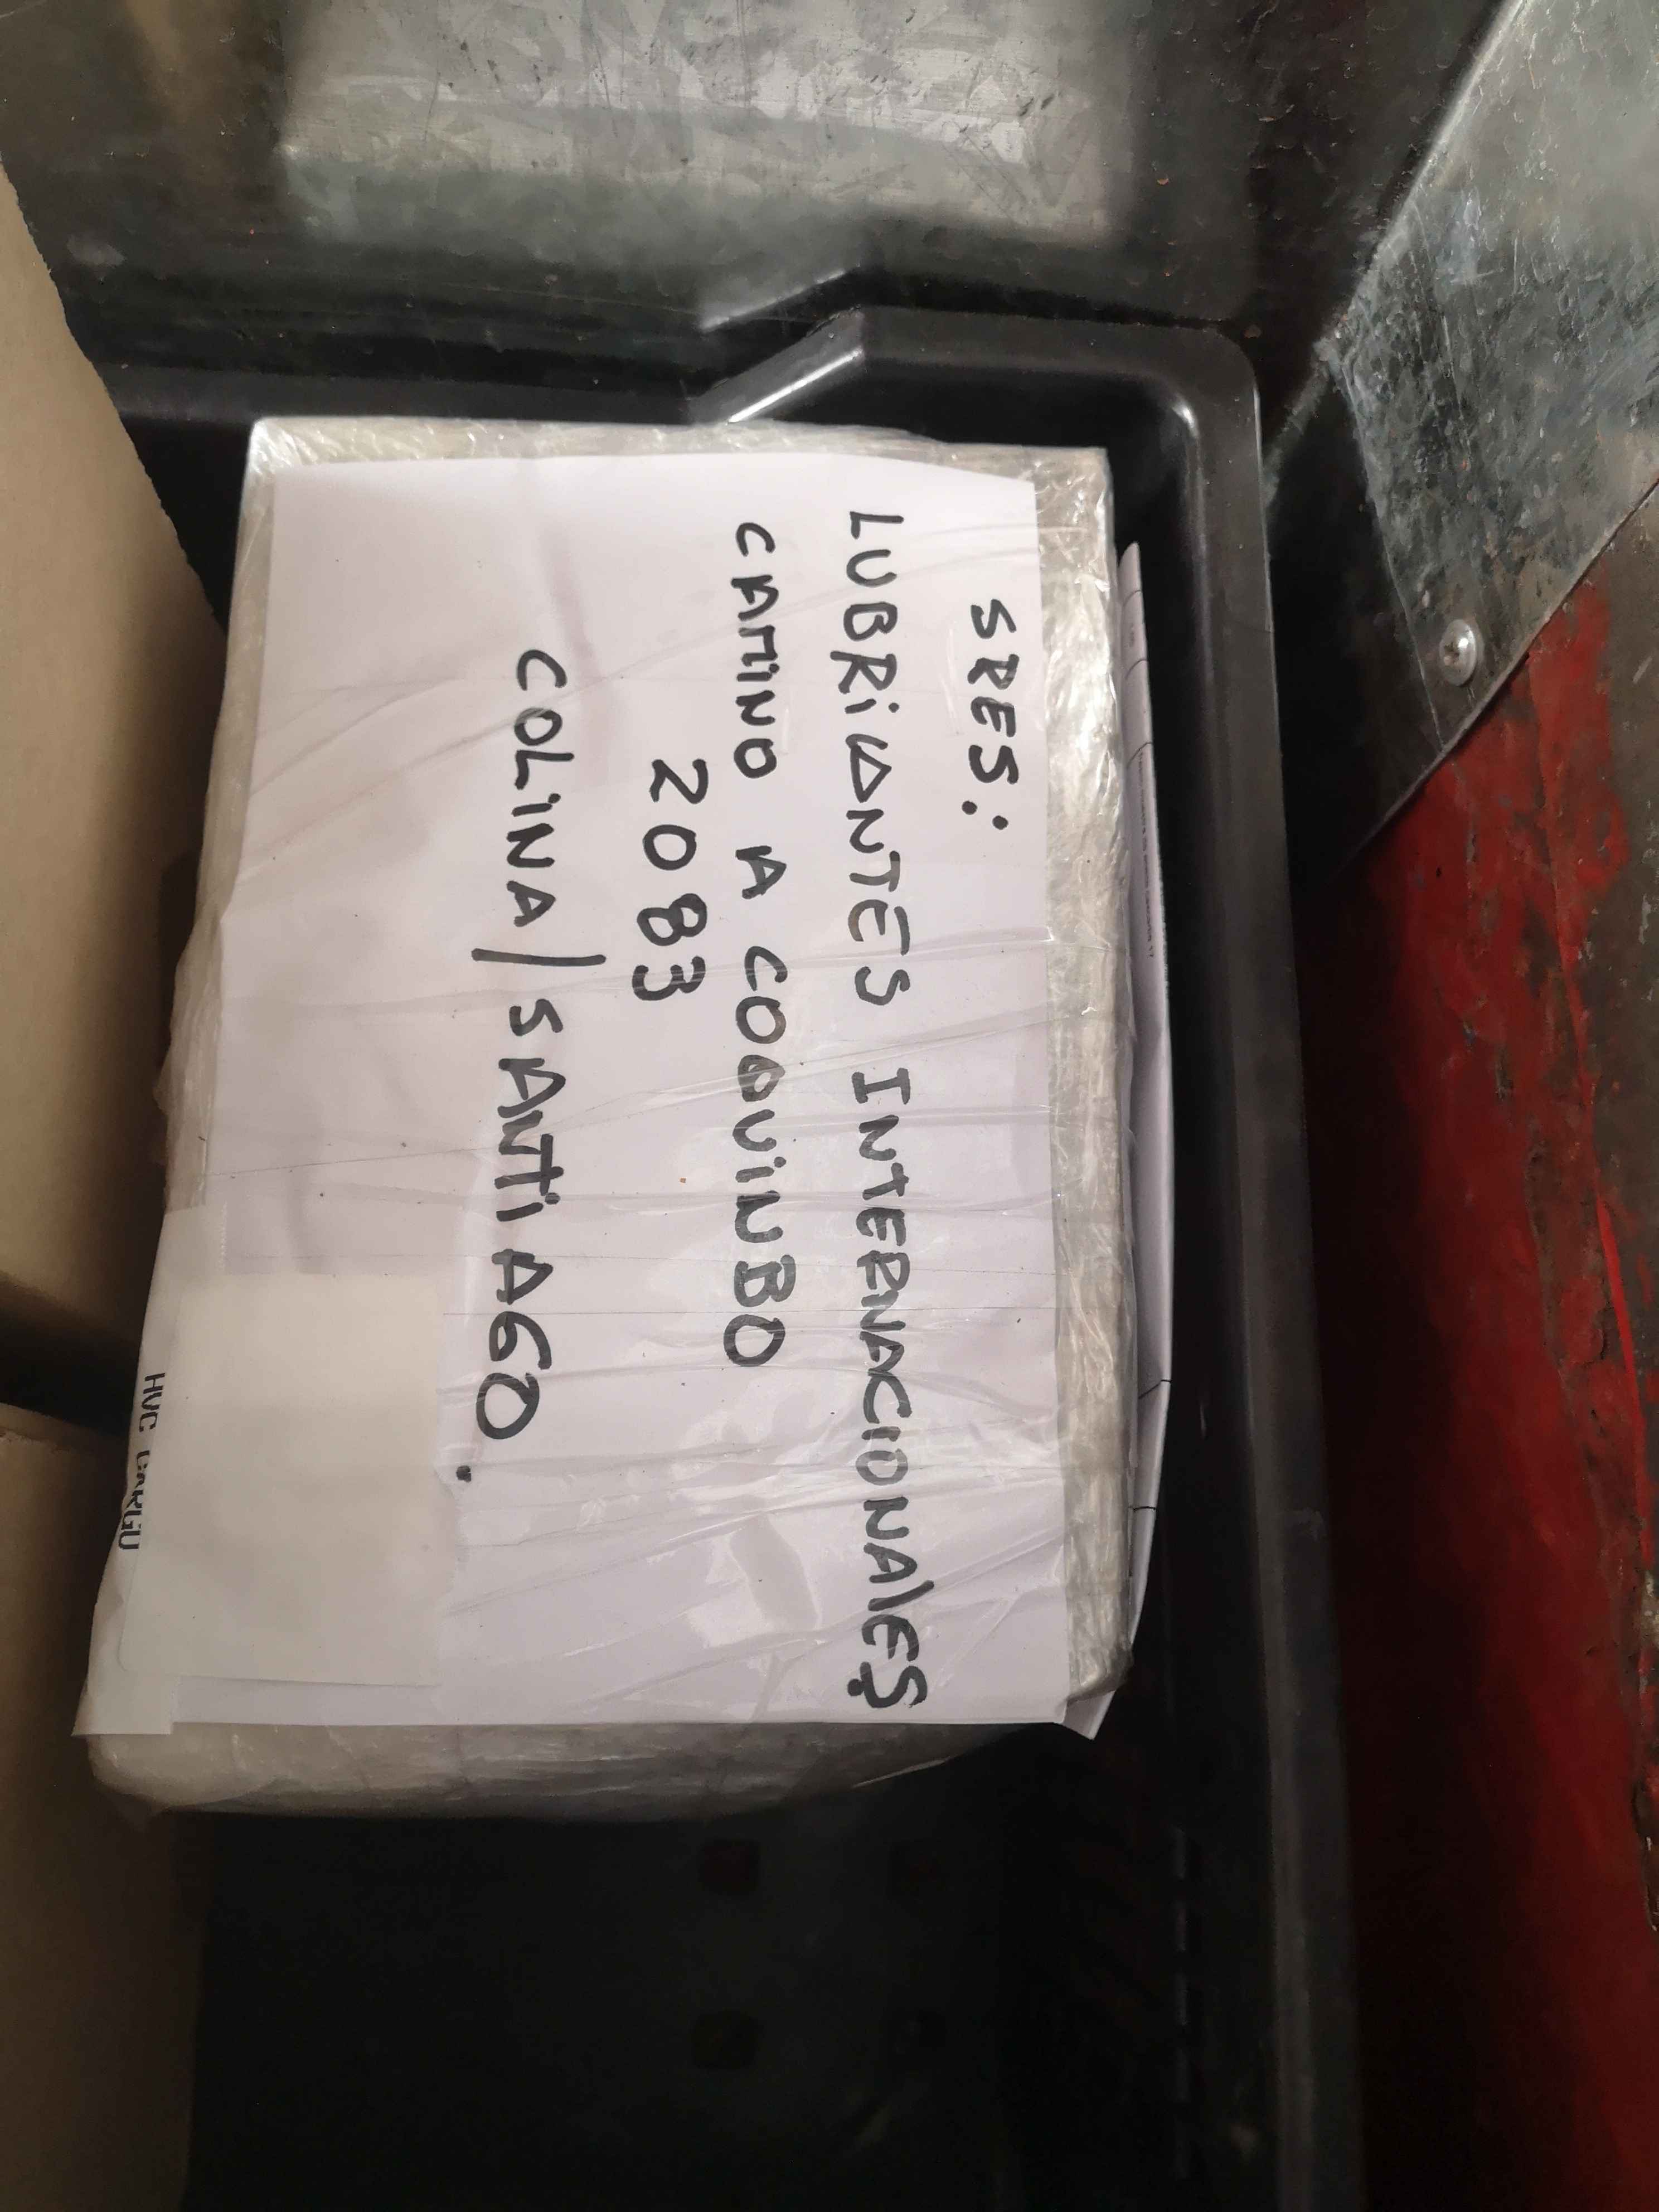 SRES:
LUBRiCANTES INTERNACIONAlES
CAMiNO A COQUiNBO
2083
COLiNA/SANTiAGO.
HVC CARGO